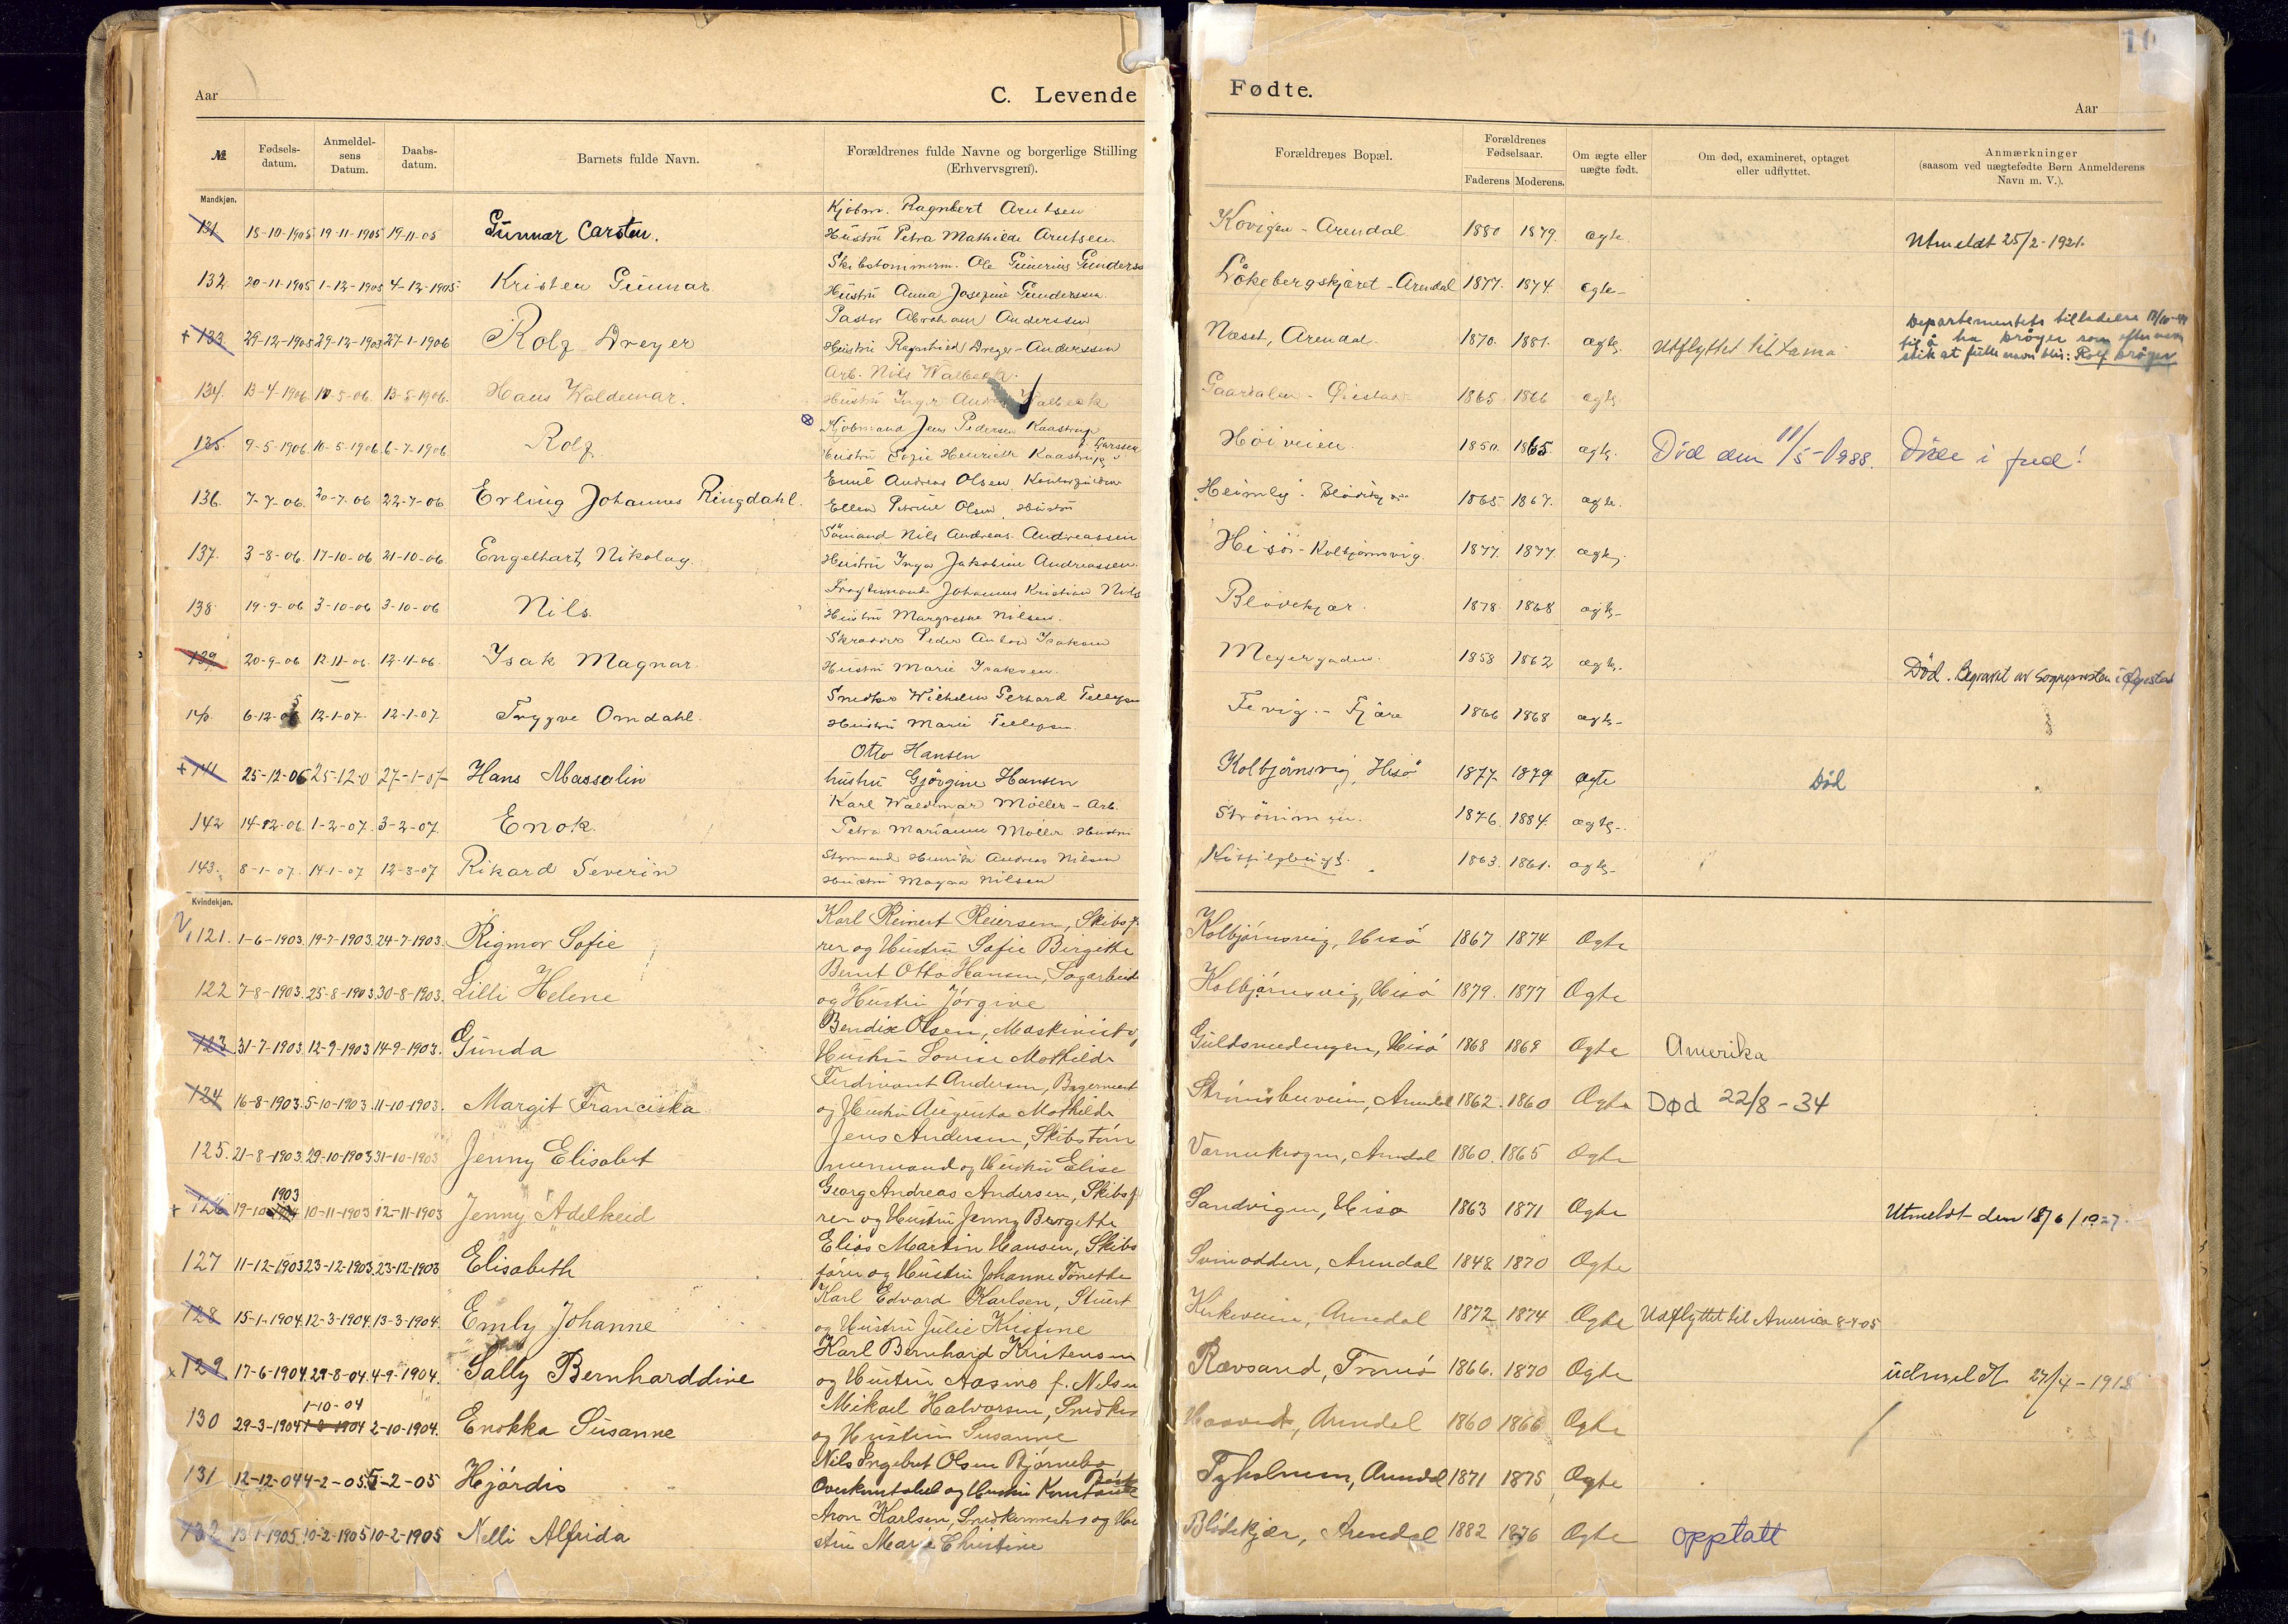 10
Aar
C. Levende
Fødte.
Aar
№
Fødsels-datum.
Anmeldel-sens Datum.
Daabs-datum.
Barnets fulde Navn.
Forældrenes fulde Navne og borgerlige Stilling (Erhvervsgren).
Forældrenes Bopæl.
Forældrenes Fødselsaar.
Faderens
Moderens.
Om ægte eller uægte født.
Om død, examineret, optaget eller udflyttet.
Anmærkninger (saasom ved uægtefødte Børn Anmelderens Navn m. V.).
Mandkjøn.
Kjøbm. Ragnbert Arntsen
131 18-10-1905 19-11-1905 19-11-05 Gunnar Carsten. Hustru Petra Mathilde Arntsen Kovigen - Arendal 1880 1879 ægte Utmeldt 25/2-1921.
Skibstømmerm. Ole Gunerius Gunders
132 20-11-1905 1-12-1905 4-12-1905 Kristen Gunnar Hustru Anna Josefine Gundersen Løkebergskjæret - Arendal 1877. 1874 ægte-
Pastor Abraham Anderssen
+ 133. 29-12-1905 29-12-1905 27-1-1906 Rolf Dreyer Hustru Ragnhild Dreyer-Anderssen Næset, Arendal 1870. 1881. ægte Utflyttet til
Departementets tilladelse
til å ha Drøyer som efternavn
slik at fulle navn blir: Rolf Drøyer
Arb. Nils Walbeck
134. 13-4-1906 10-5-06. 13-5-1906. Hans Waldemar. Hustru Inger Andrea Walbeck Gaardalen - Øiestad 1865 1866 ægte
Kjøbmand Jens Pedersen Kaastrup
f. Larssen
135. 9-5-1906. 10-5-1906. 6-7-1906 Rolf. Hustru Sofie Henriette Kaastrup Høiveien. 1850. 1865. ægte. Død den 11/5-1988. Døde i fred!
Emil Andreas Olsen, Kontorfuldm
136. 7-7-06. 20-7-06 22-7-06 Erling Johannes Ringdahl. Ellen Petrine Olsen, Hustru "Heimly". Blødekjær 1865 1867. ægte.
Sømand Nils Andreas Andreassen
137. 3-8-06. 17-10-06 21-10-06. Engelhart Nikolay. Hustru Inga Jakobine Andreassen. Hisø - Kolbjørnsvig. 1877. 1877. ægte.
Johannes Kristian Nils
138. 19-9-06 3-10-06 3-10-06 Nils. Hustru Margrethe Nilsen. Blødekjær. 1878. 1868 ægte-
Skrædder Peder Anton Isaksen
139 20-9-06 12-11-06. 12-11-06. Isak Magnar. Hustru Marie Isaksen. Meyergaden. 1858 1862 ægte. Død. Begravet av Sognepresten i Øyestad
Snedker Wilhelm Gerhard Tellefsen
5
140. 6-12-06 12-1-07. 12-1-07 Trygve Omdahl. Hustru Marie Tellefsen Fevig. - Fjære 1866 1868 ægte-
Otto Hansen
+ 141 25-12-06 25-12-0 27-1-07 Hans Massalin hustru Gjørgine Hansen Kolbjørnsvig, Hisø 1877 1879 ægte Død
Karl Waldemar Møller - Arb.
142 14-12-06 1-2-07. 3-2-07. Enok. Petra Marianne Møller. Hustru Strømmen. 1876. 1884. ægte.
Styrmand Henrik Andreas Nilsen
143. 8-1-07. 14-1-07 12-3-07 Rikard Severin Hustru Magna Nilsen Kittilsbugt. 1863. 1861. ægte-
Kvindekjøn.
Karl Reinert Reiersen, Skibsf.
V 121. 1-6-1903. 19-7-1903. 24-7-1903. Rigmor Sofie rer og Hustru Sofie Birgitte Kolbjørnsvig, Hisø 1867 1874 Ægte
Bernt Otto Hansen, Sagarbeide
122 7-8-1903. 25-8-1903. 30-8-1903. Lilli Helene og Hustru Jørgine Kolbjørnsvig, Hisø 1879. 1877 Ægte
Bendix Olsen, Maskinist og
123 31-7-1903 12-9-1903 14-9-1903. Gunda Hustru Lovise Mathilde Guldsmedengen, Hisø 1868 1869 Ægte Amerika
Ferdinant Andersen, Bagermest
124 16-8-1903. 5-10-1903. 11-10-1903. Margit Franciska og Hustru Augusta Mathilde Strømsbuveien, Arendal 1862. 1860 Ægte Død 22/8-34
Jens Andersen, Skibstøm
125. 21-8-1903. 29-10-1903 31-10-1903 Jenny Elisabet mermand og Hustru Elise Arendal 1860. 1865 Ægte
Georg Andreas Andersen, Skibsf
1903
+ 126 19-10-1904 10-11-1903 12-11-1903 Jenny Adelheid rer og Hustru Jenny Bergitte Sandvigen, Hisø 1863 1871 Ægte Utmeldt den 18/6/1927
Elias Martin Hansen, Skibs
127 11-12-1903 23-12-1903. 23-12-1903 Elisabeth fører og Hustru Johanne Tonette Svinodden, Arendal 1848 1870 Ægte
Karl Edvard Karlsen, Stuert
128 15-1-1904. 12-3-1904. 13-3-1904. Emly Johanne og Hustru Julie Kristine Kirkeveien, Arendal 1872 1874 Ægte Udflyttet til America 8-4-05
Karl Bernhard Kristensen
x 129 17-6-1904. 29-8-04. 4-9-1904. Sally Bernharddine og Hustru Aasine f. Nilsen Rævsand, Tromø 1866. 1870 Ægte udmeldt 27/4-1918
1-10-04 Mikael Halvorsen, Snedker
130 29-3-1904 1-8-1904 2-10-1904. Enokka Susanne og Hustru Susanne Arendal 1860 1866 Ægte
Nils Ingebret Olsen Bjørnebo
131 12-12-04 4-2-05. 5-2-05 Hjørdis Overkonstabel og Hustru Tyholmen, Arendal 1871 1875 Ægte
Aron Karlsen, Snedkermester og Hu
132 13-1-1905. 10-2-1905 10-2-1905 Nelli Alfrida stru Marie Christine Blødekjær, Arendal 1882 1876 Ægte opptatt